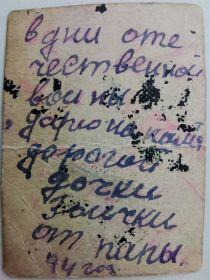 в дни оте
чественной
войны
дарю на
дорогой
дочки
Зоички
от папы.
94 год